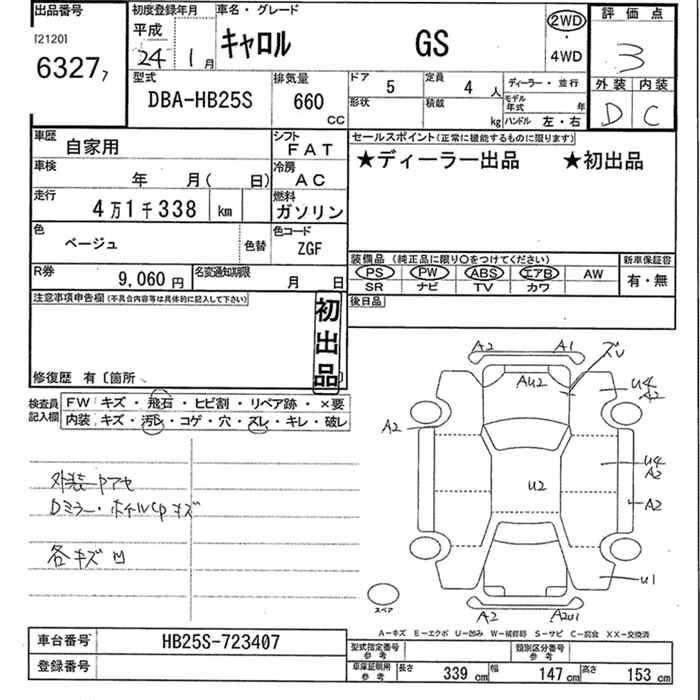 出品番号 初度登録年月 車名・グレード 評価点
[2120] 平成
6327 7 24 1月 キャロル GS 2WD 4WD 3
外装 内装
型式 排気量 ドア 5 定員 4人 ディーラー・並行
DBA-HB25S 660 CC 形状 積載 kg モデル年式 年 D C
ハンドル 左・右
車歴 自家用 シフト FAT セールスポイント(正常に機能するものに限ります)
★ディーラー出品 ★初出品
車検 年 月( 日) 冷房 AC
走行 4万1千338 km 燃料 ガソリン
色 ベージュ 色替 色コード ZGF
装備品 (純正品に限り○をつけてください) 新車保証書
R券 9,060円 名変通知期限 月 日 PS PW ABS エアB AW 有・無
SR ナビ TV カワ
注意事項申告欄(不具合内容等は具体的に記入して下さい) 後日品
初出品
修復歴 有〔箇所 〕
検査員記入欄 FW キズ・飛石・ヒビ割・リペア跡・×要
内装 キズ・汚レ・コゲ・穴・スレ・キレ・破レ
A2 A1 ズレ
AU2 U4 A2
A2
外装ヤケ
U4 A2
Dミラー・ホイルCpキズ
U2 A2
各キズ凹
U1
スペア A2 A2U1
A-キズ E-エクボ U-凹み W-補修跡 S-サビ C-腐食 XX-交換済
車台番号 HB25S-723407 型式指定番号 参考 類別区分番号 参考
登録番号 車庫証明用 参考 長さ 339 cm 幅 147 cm 高さ 153 cm